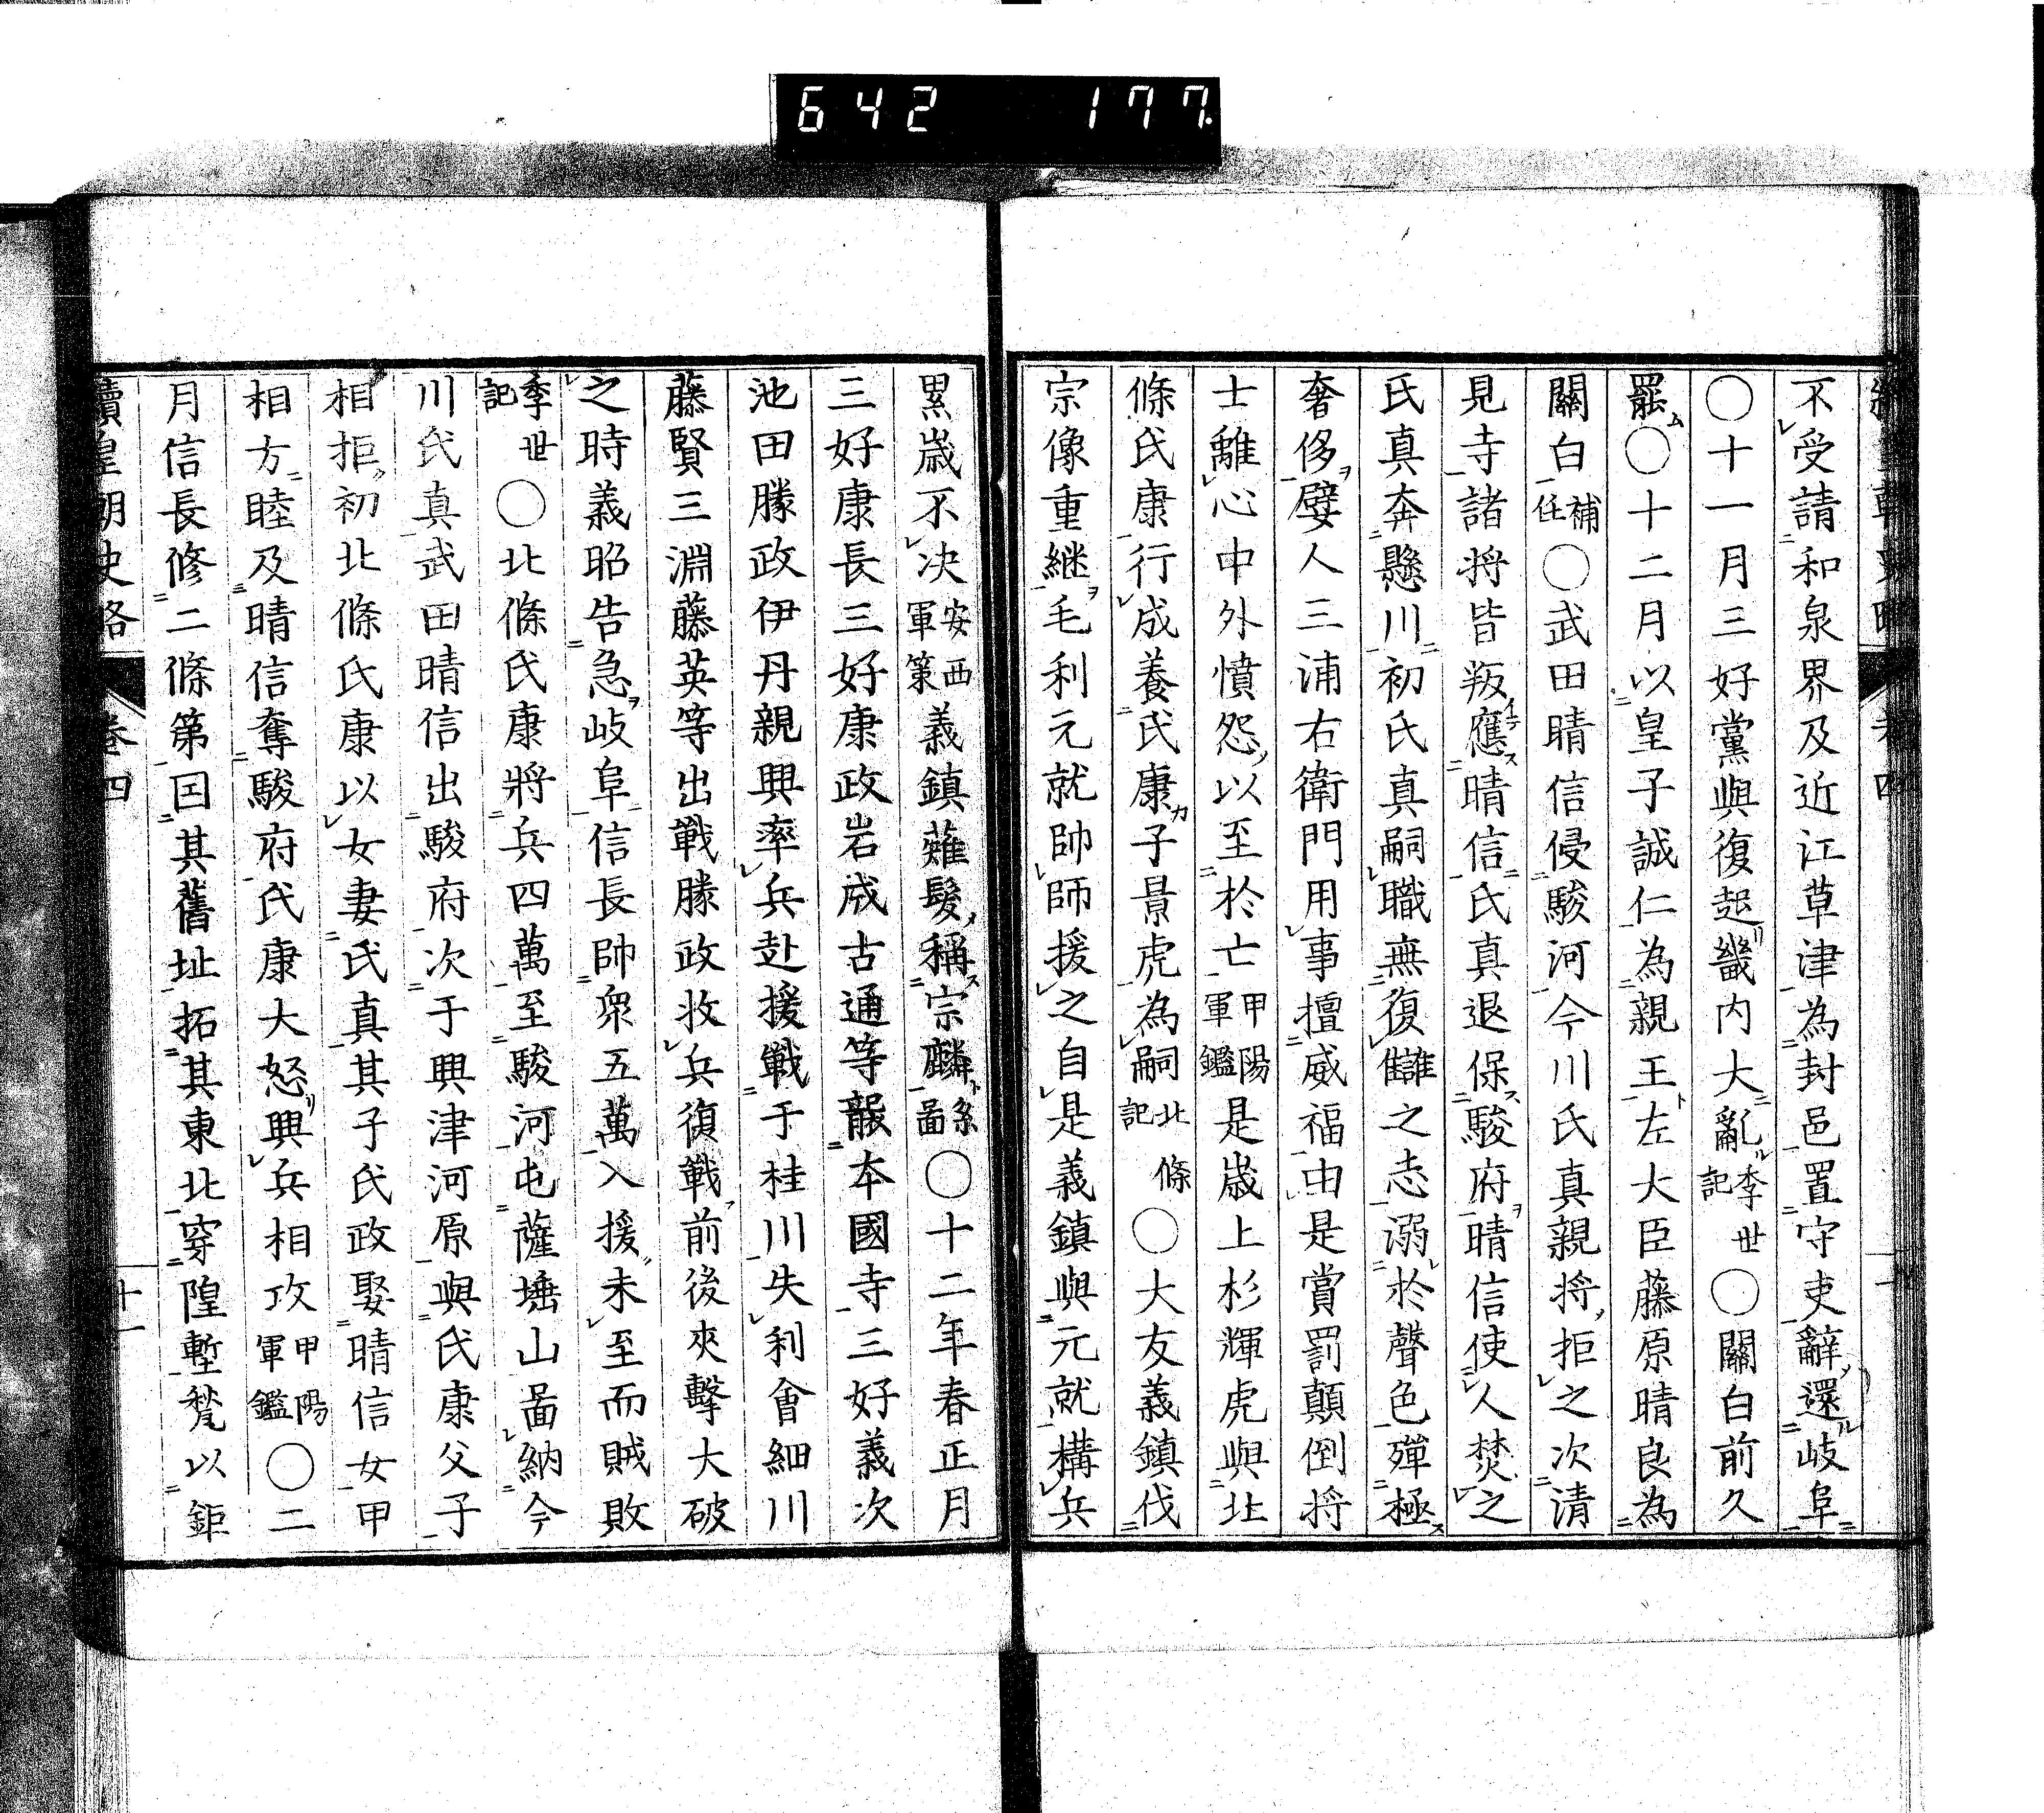 642 177
不受請和泉界及近江草津為封邑置守吏辭還岐阜
〇十一月三好黨與復起畿内大亂季世記〇關白前久
罷〇十二月以皇子誠仁為親王左大臣藤原晴良為
關白補任〇武田晴信侵駿河今川氏真親将拒之次清
見寺諸将皆叛應晴信氏真退保駿府晴信使人焚之
氏真奔懸川初氏真嗣職無復讎之志溺於聲色殫極
奢侈嬖人三浦右衛門用事擅威福由是賞罰顛倒将
士離心中外憤怨以至於亡甲陽軍鑑是歳上杉輝虎與北
條氏康行成養氏康子景虎為嗣北條記〇大友義鎮伐
宗像重継毛利元就帥師援之自是義鎮與元就構兵
累歳不决安西軍策義鎮薙髮稱宗麟系圖〇十二年春正月
三好康長三好康政岩成古通等襲本國寺三好義次
池田勝政伊丹親興率兵赴援戰于桂川失利會細川
藤賢三淵藤英等出戰勝政收兵復戰前後夾擊大破
之時義昭告急岐阜信長帥衆五萬入援未至而賊敗
季世記〇北條氏康將兵四萬至駿河屯薩埵山啚納今
川氏真武田晴信出駿府次于興津河原與氏康父子
相拒初北條氏康以女妻氏真其子氏政娶晴信女甲
相方睦及晴信奪駿府氏康大怒興兵相攻甲陽軍鑑〇二
月信長修二條第因其舊址拓其東北穿隍塹甃以鉅
續皇朝史略 卷四 十一